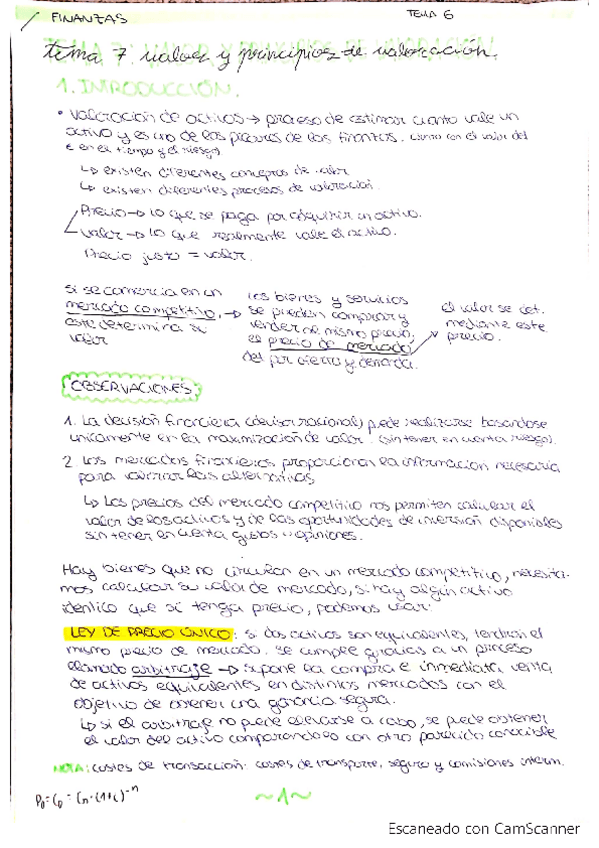 FINANZAS
TEMA 6
tema 7: valor y principios de valoración.
1. INTRODUCCIÓN.
• Valoración de activos → proceso de estimar cuanto vale un
activo y es uno de los pilares de las finanzas. cuenta con el valor del
€ en el tiempo y el riesgo)
↳ existen diferentes conceptos de valor
↳ existen diferentes procesos de valoración.
Precio → lo que se paga por adquirir un activo.
Valor → lo que realmente vale el activo.
Precio justo = valor.
si se comercia en un
mercado competitivo, →
este determina su
valor
los bienes y servicios
se pueden comprar y
vender al mismo precio,
el precio de mercado
del por cierro y demanda.
el valor se det.
mediante este
precio.
OBSERVACIONES
1. La decisión financiera (decisor racional) puede realizarse basandose
unicamente en la maximización de valor. (sin tener en cuenta riesgo).
2. Los mercados financieros proporcionan la información necesaria
para valorar las alternativas
↳ Los precios del mercado competitivo nos permiten calcular el
valor de los activos y de las oportunidades de inversión disponibles
sin tener en cuenta gustos u opiniones.
Hay bienes que no circulan en un mercado competitivo, necesita-
mos calcular su valor de mercado, si hay algún activo
identico que si tenga precio, podemos usar:
LEY DE PRECIO ÚNICO: si dos activos son equivalentes, tendrán el
mismo precio de mercado. se cumple gracias a un proceso
llamado arbitraje → supone la compra e inmediata venta
de activos equivalentes en distintos mercados con el
objetivo de obtener una ganancia segura.
↳ si el arbitraje no puede llevarse a cabo, se puede obtener
el valor del activo comparandolo con otro parecido conocible
NOTA: costes de transacción: costes de transporte, seguro y comisiones interm.
P₀ = C₀ = Cn·(1+i)⁻ⁿ
~1~
Escaneado con CamScanner